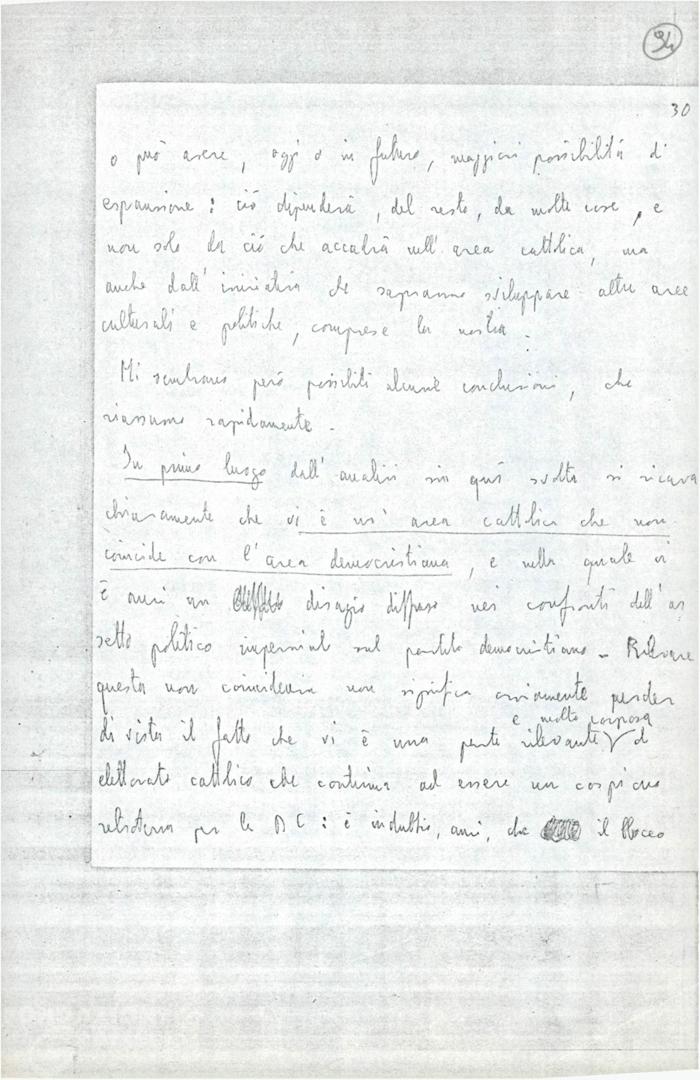 94
30
o può avere, oggi o in futuro, maggiori possibilità di
espansione: ciò dipenderà, del resto, da molte cose, e
non solo da ciò che accadrà nell'area cattolica, ma
anche dall'iniziativa che sapranno sviluppare altre aree
culturali e politiche, comprese la nostra.
Mi sembrano però possibili alcune conclusioni, che
riassumo rapidamente.
In primo luogo dall'analisi sin qui svolta si ricava
chiaramente che vi è un'area cattolica che non
coincide con l'area democristiana, e nella quale vi
è anzi un disagio diffuso nei confronti dell'as
setto politico imperniato sul partito democristiano. Rilevare
questa non coincidenza non significa ovviamente perder
e molto corposa
di vista il fatto che vi è una parte rilevante di
elettorato cattolico che continua ad essere un cospicuo
retroterra per la DC: è indubbio, anzi, che il blocco